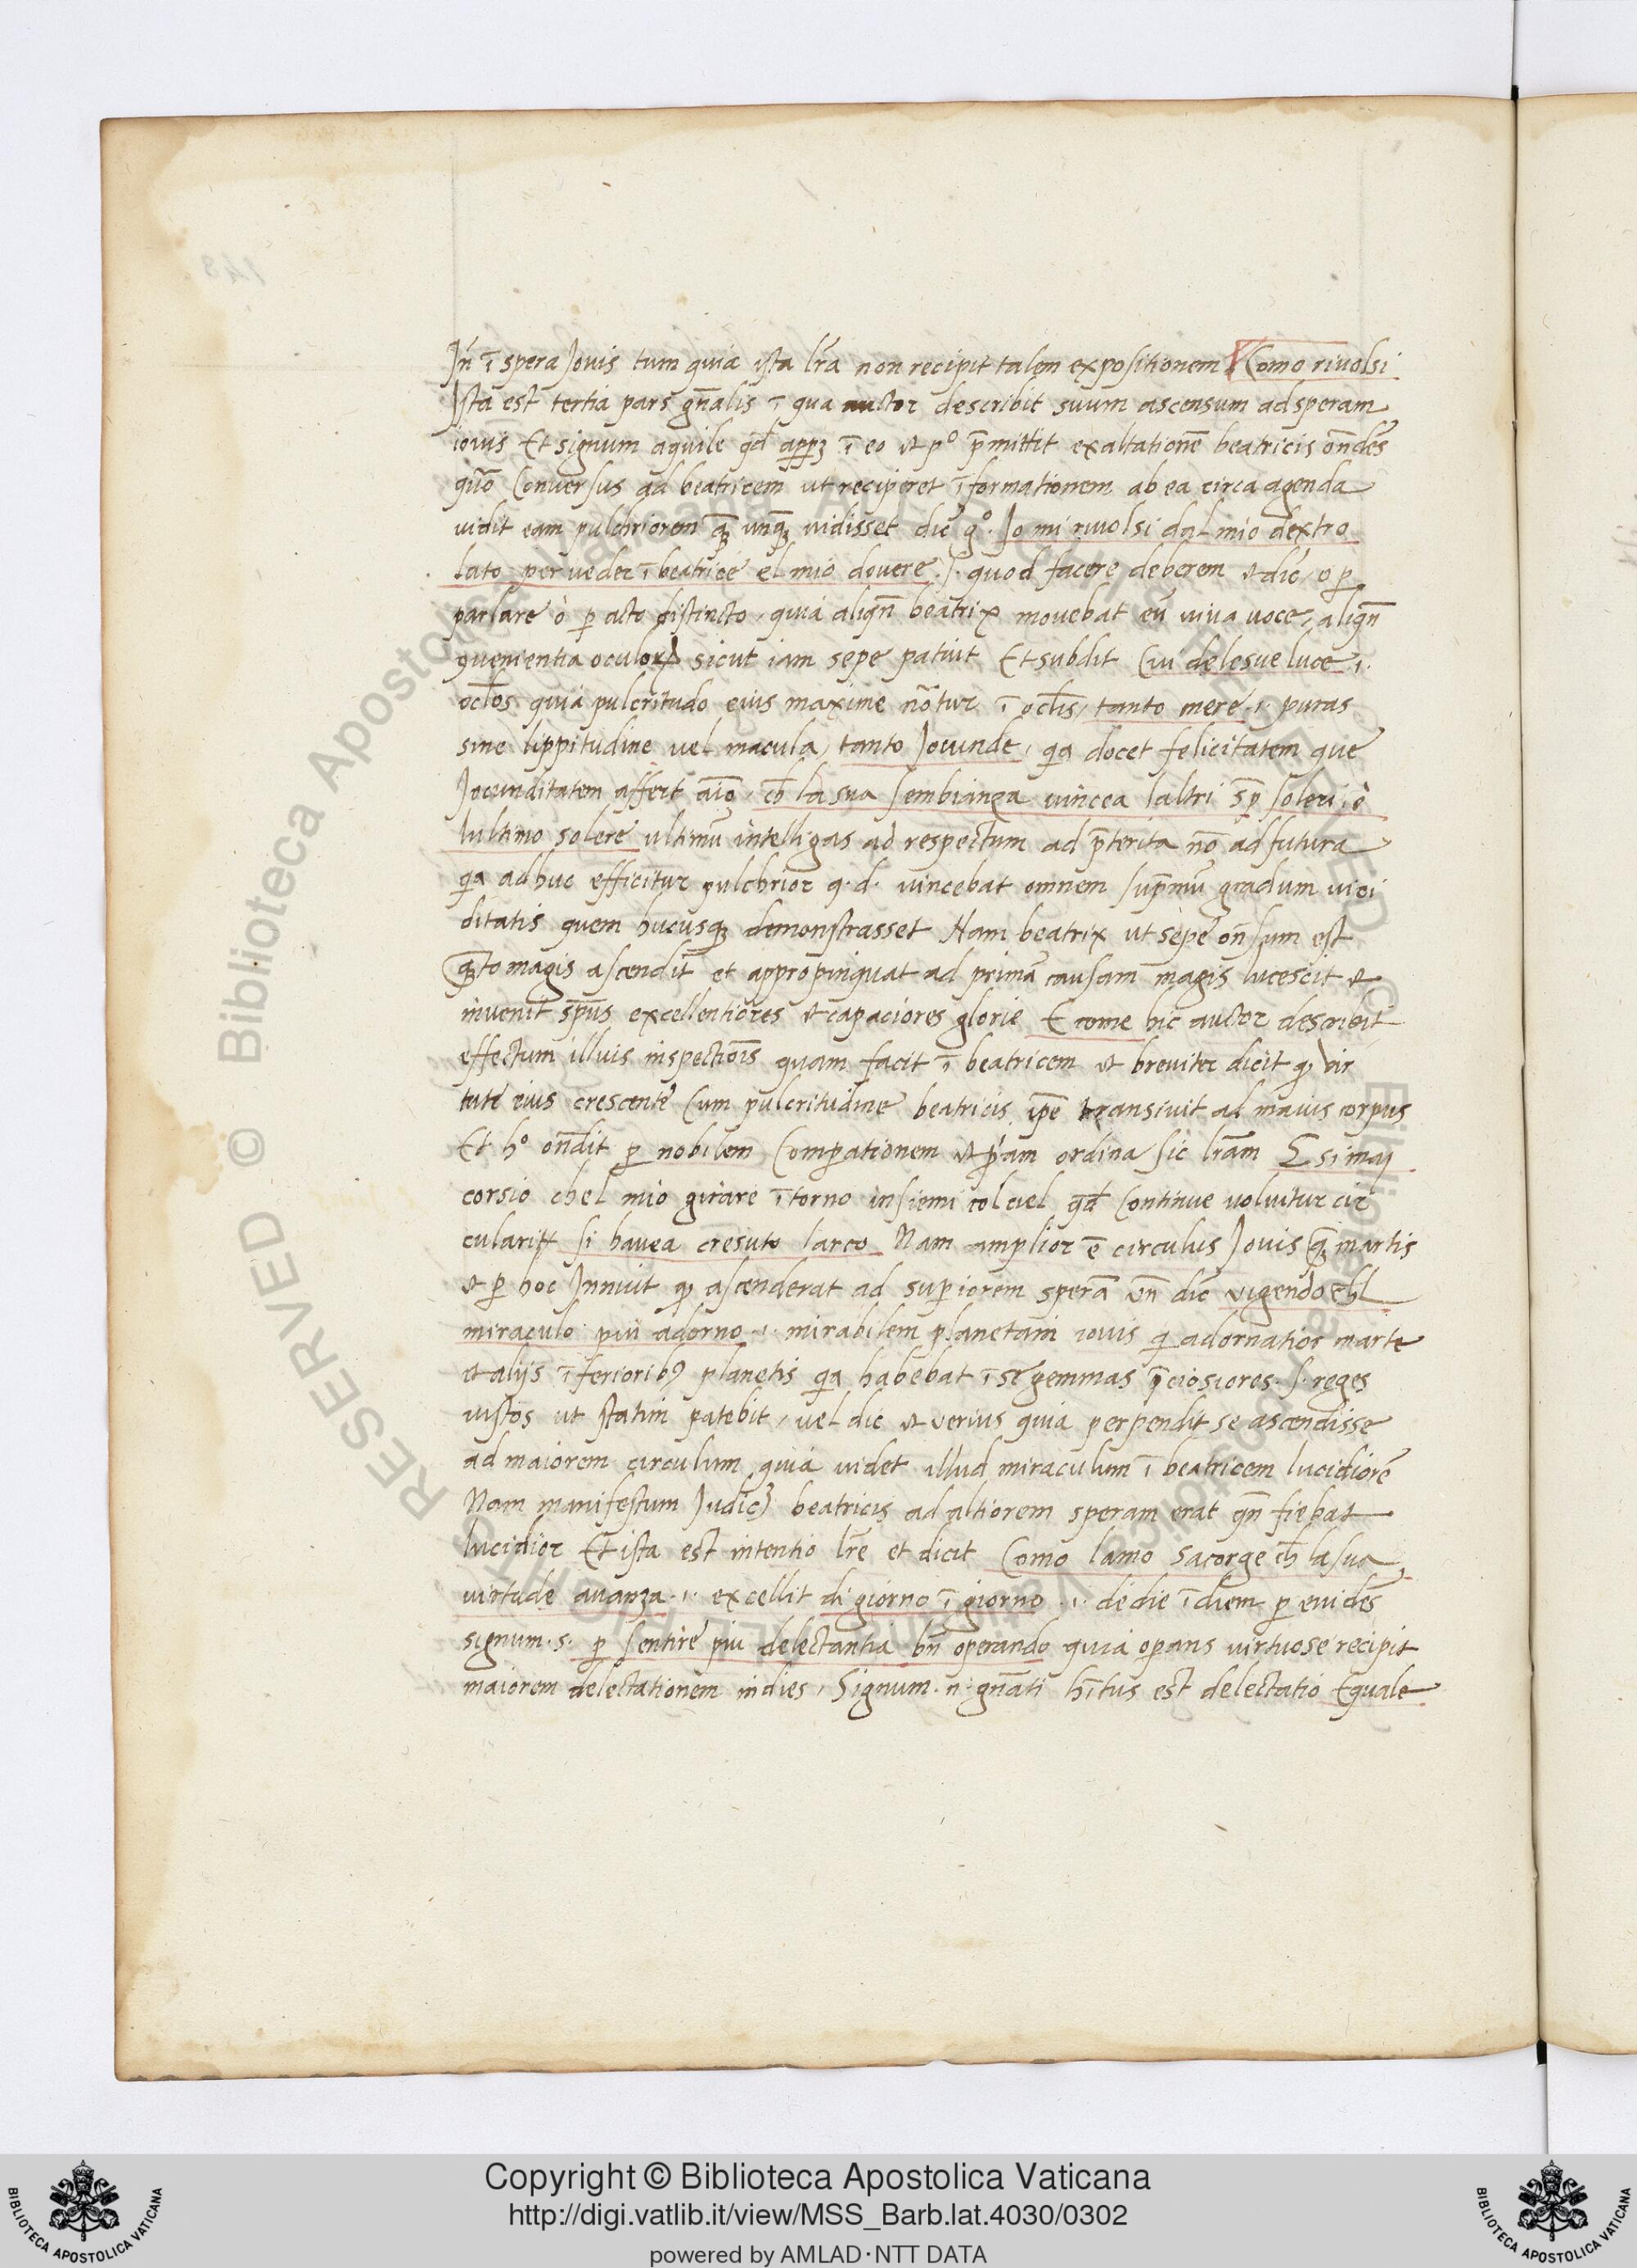 Jn̄ ī spera Jouis tum quia ista lr̄a non recipit talem expositionem Como riuolsi
Jsta est tertia pars gn̄alis ī qua auctor describit suum ascensum ad speram
iouis Et signum aquile qd̄ app̄ꝫ ī eo et pº p̄mittit exaltationē beatricis on̄dēs
quō Conuersus ad beatricem ut reciperet īformationem ab ea circa agenda
uidit eam pulchriorem qꝫ̄ unqꝫ̄ uidisset dic̄ gº. Io mi riuolsi dal mio dextro
lato per ueder ī beatrice el mio douere .ſ. quod facere deberem et dic̄, o ꝑ
parlare ò ꝑ acto distincto, quia aliqn̄ beatrix mouebat eū uiua uoce, aliqn̄
ꝯuenientia oculoꝝ sicut iam sepe patuit Et subdit Cui de le sue luce .i.
ocl̄os quia pulcritudo eius maxime nōtur ī ocl̄is, tanto mere .i. puras
sine lippitudine uel macula, tanto Jouunde, qa docet felicitatem que
Jocunditatem affert aīo, ch̄ la sua sembianza uincea laltri sp̄ soleri, è
lultimo solere ultimū intelligas ad respectum ad p̄terita nō ad futura
qa adhuc efficitur pulchrior q.d. uincebat omnem sup̄mū gradum uici
ditatis quem hucusqꝫ demonstrasset Nam beatrix ut sepe on̄sum est
qꝫ̄to magis ascendit et appropinquat ad primā causam magis lucescit et
inuenit sp̄us excellentiores et capaciores glorie E come hic auctor describit
effectum illuis inspectiōis quam facit ī beatricem et breuiter dicit ꝙ uir
tute eius crescente Cum pulcritudine beatricis ip̄e transiuit ad maius corpus
Et hº on̄dit ꝑ nobilem Comꝑationem et p̄am ordina sic lr̄am E si maj
corsio chel mio girare ītorno insiemi col ciel qd̄ Continue uoluitur cir
culariꝉ si hauea cresuto larco Nam amplior ē circulus Jouis qꝫ̄ martis
et ꝑ hoc Jnnuit ꝙ ascenderat ad supiorem sperā un̄ dic̄ uigendo chl
miraculo piu adorno .i. mirabilem planetam iouis qi adornatior marte
et alijs īferioribꝰ planetis qa habebat ī se gemmas p̄ciosiores .ſ. reges
iustos ut statim patebit, uel dic et uerius quia perpendit se ascendisse
ad maiorem circulum quia uidet illud miraculum ī beatricem lucidiorē
Nam manifestum Judicꝫ beatricis ad altiorem speram erat qn̄ fiebat
lucidior Et ista est intentio lr̄e et dicit Como lamo sacorge ch̄ la sua
uirtude auanza .i. excellit di giorno ī giorno .i. de die ī diem ꝑ euidēs
signum .s. ꝑ sentire piu delectantia bn̄ operando quia oꝑans uirtuose recipit
maiorem delectationem indies, Signum .n. gn̄ati hītus est delectatio Equale
Copyright © Biblioteca Apostolica Vaticana
http://digi.vatlib.it/view/MSS_Barb.lat.4030/0302
powered by AMLAD·NTT DATA